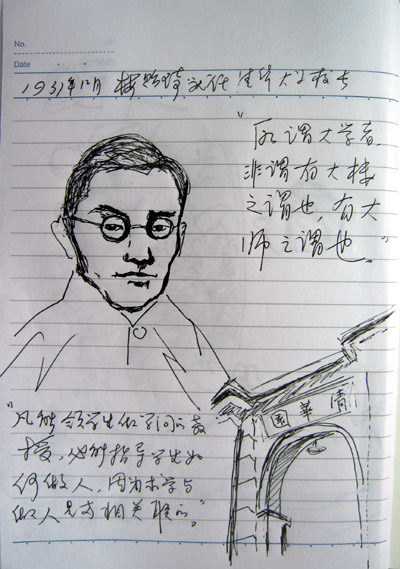 No.
Date
1931年12月 梅贻琦 任清华大学校长
“所谓大学者,
非谓有大楼
之谓也,有大
师之谓也。”
清華園
“凡能领学生做学问的教
授,必能指导学生如
何做人,因为求学与
做人是两相关联的。”